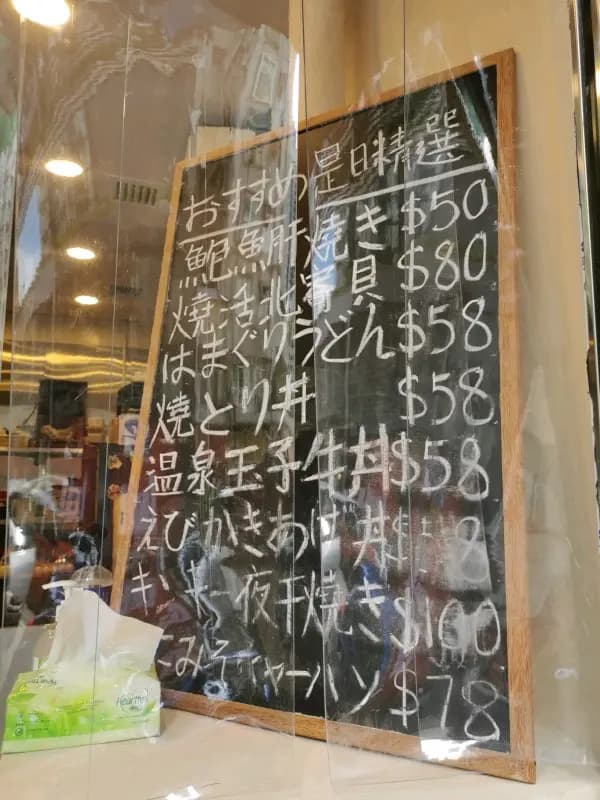 おすすめ 是日精選
鮑魚肝焼き $50
焼活北寄貝 $80
はまぐりうどん $58
焼とり丼 $58
温泉玉子牛丼 $58
えびかきあげ丼 $58
一夜干焼き $100
にみそチャーハン $78
Hearttex